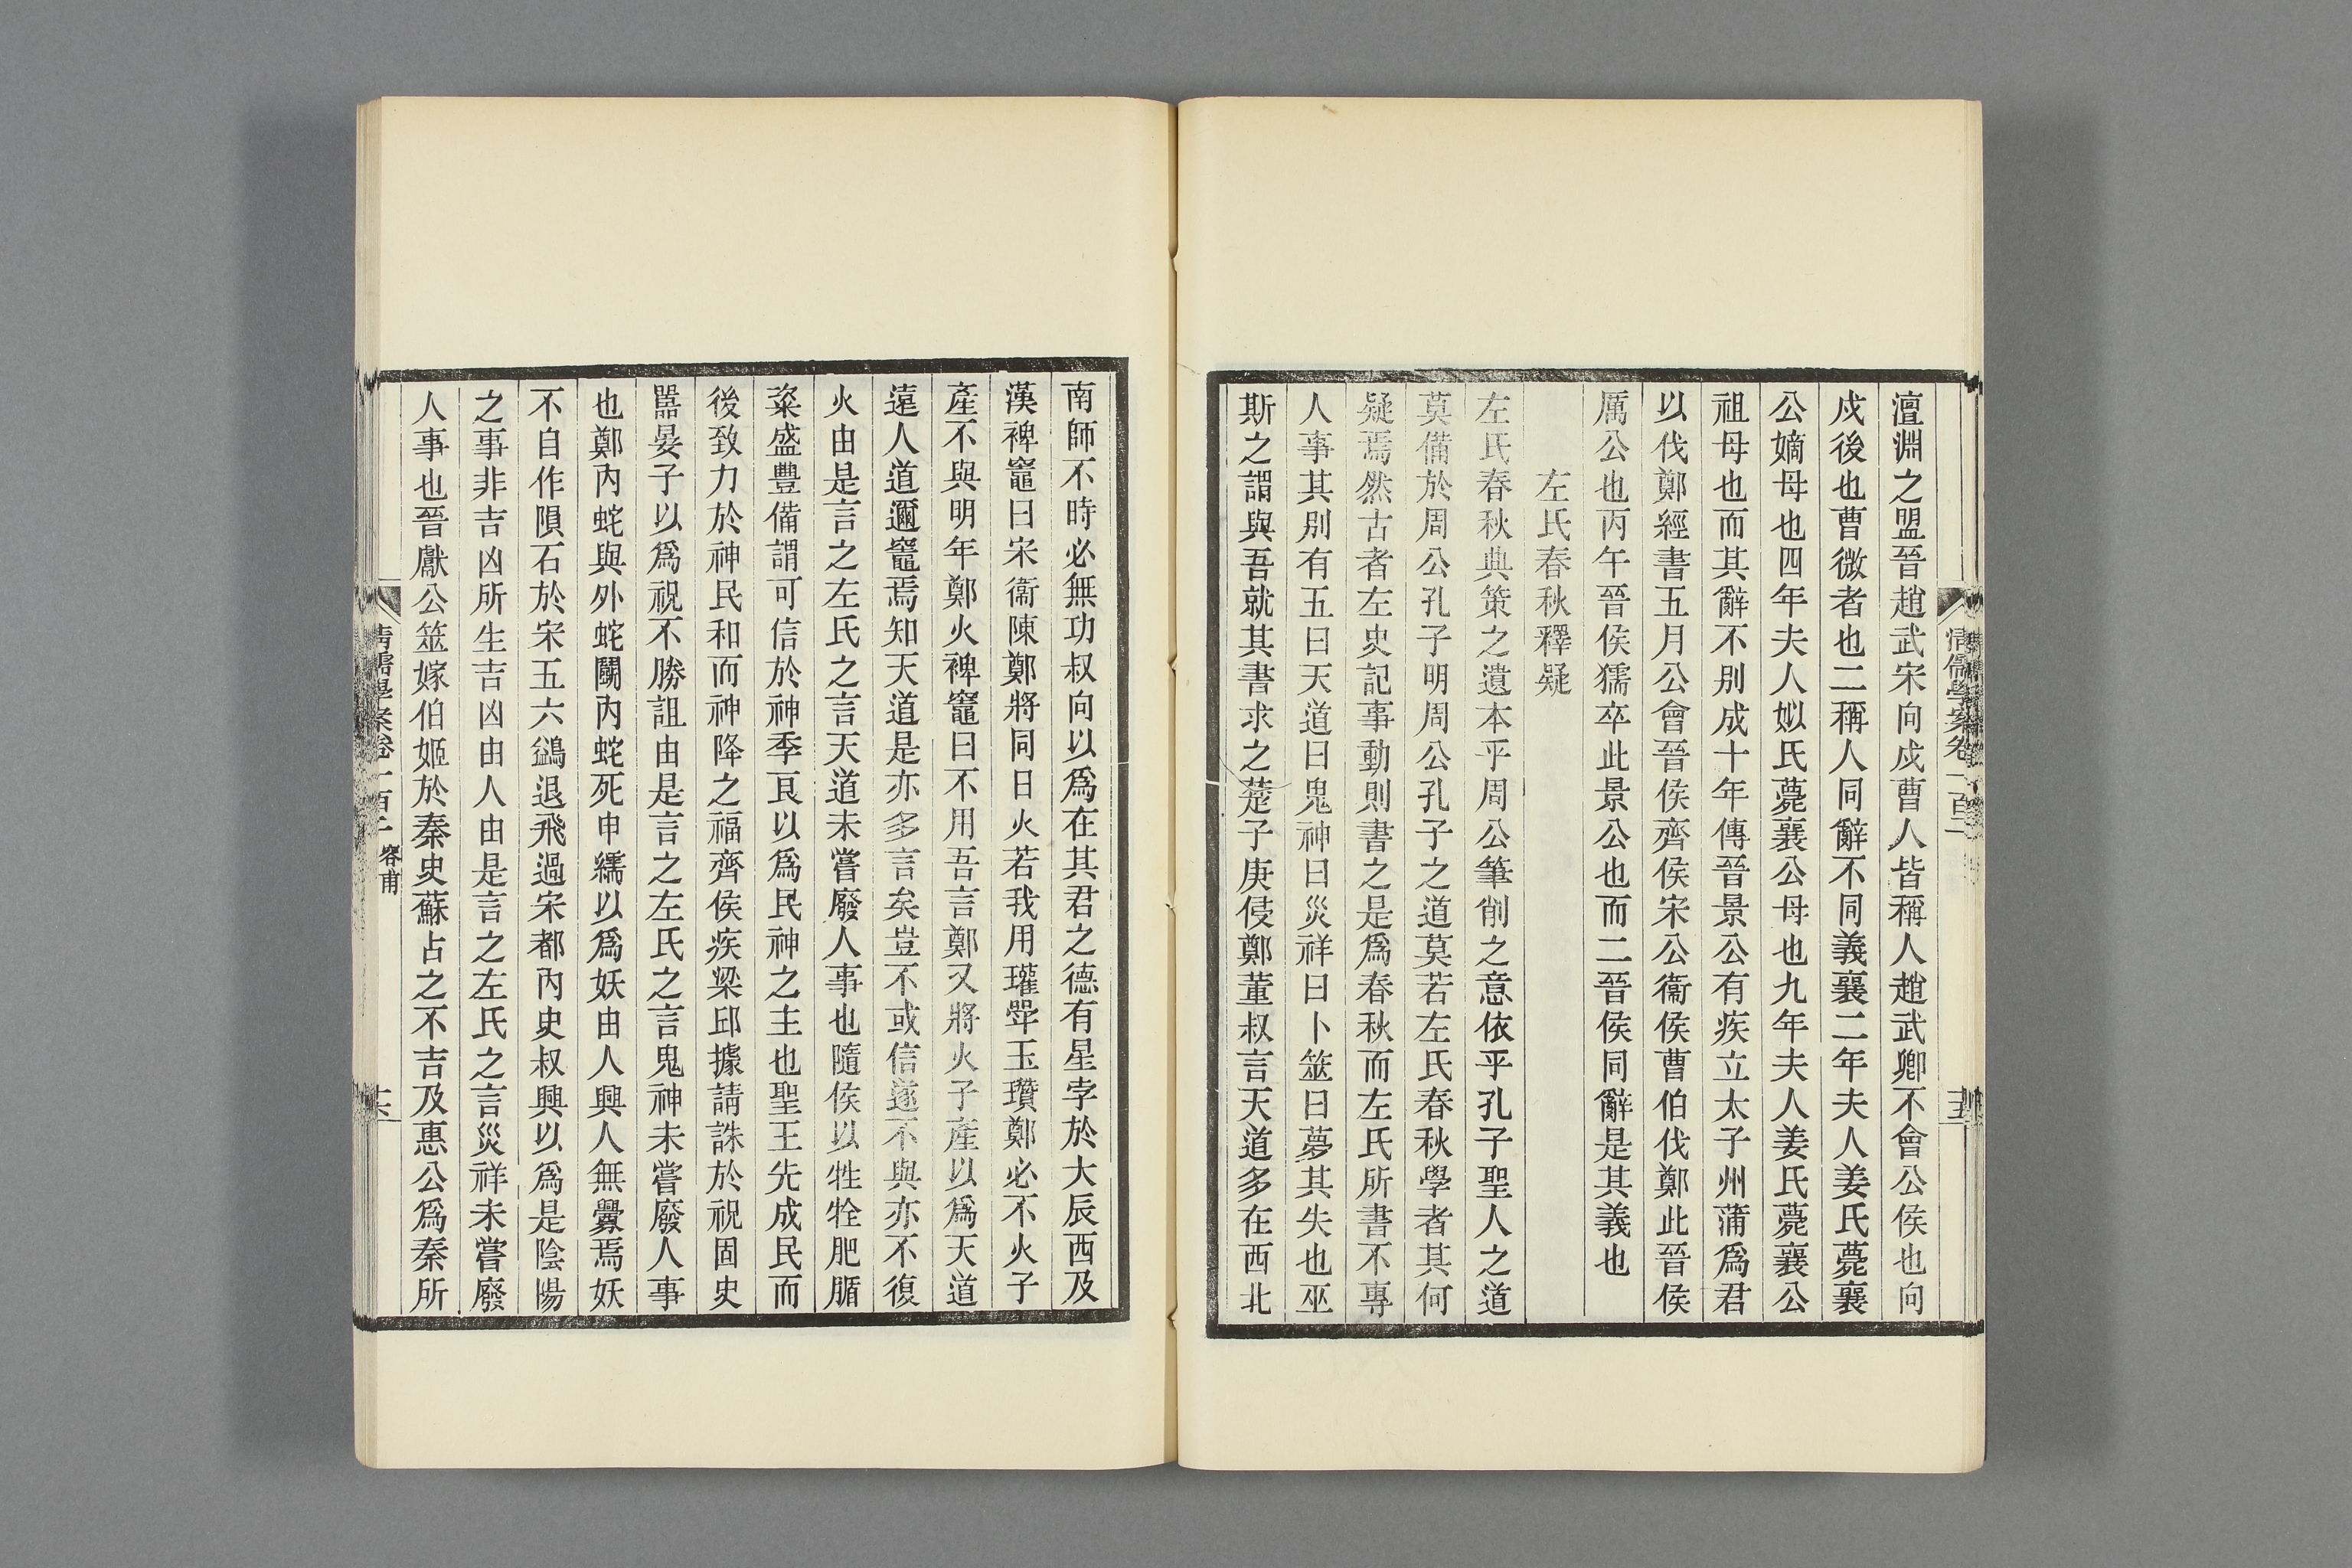 澶淵之盟晉趙武宋向戍曹人皆稱人趙武卿不會公侯也向
戍後也曹微者也二稱人同辭不同義襄二年夫人姜氏薨襄
公嫡母也四年夫人姒氏薨襄公母也九年夫人姜氏薨襄公
祖母也而其辭不別成十年傳晉景公有疾立太子州蒲爲君
以伐鄭經書五月公會晉侯齊侯宋公衞侯曹伯伐鄭此晉侯
厲公也丙午晉侯獳卒此景公也而二晉侯同辭是其義也
左氏春秋釋疑
左氏春秋典策之遺本乎周公筆削之意依乎孔子聖人之道
莫備於周公孔子明周公孔子之道莫若左氏春秋學者其何
疑焉然古者左史記事動則書之是爲春秋而左氏所書不專
人事其別有五曰天道曰鬼神曰災祥曰卜筮曰夢其失也巫
斯之謂與吾就其書求之楚子庚侵鄭董叔言天道多在西北
南師不時必無功叔向以爲在其君之德有星孛於大辰西及
漢裨竈曰宋衞陳鄭將同日火若我用瓘斝玉瓚鄭必不火子
產不與明年鄭火裨竈曰不用吾言鄭又將火子產以爲天道
遠人道邇竈焉知天道是亦多言矣豈不或信遂不與亦不復
火由是言之左氏之言天道未嘗廢人事也隨侯以牲牷肥腯
粢盛豐備謂可信於神季良以爲民神之主也聖王先成民而
後致力於神民和而神降之福齊侯疾梁邱據請誅於祝固史
嚚晏子以爲祝不勝詛由是言之左氏之言鬼神未嘗廢人事
也鄭內蛇與外蛇鬭內蛇死申繻以爲妖由人興人無釁焉妖
不自作隕石於宋五六鷁退飛過宋都內史叔興以爲是陰陽
之事非吉凶所生吉凶由人由是言之左氏之言災祥未嘗廢
人事也晉獻公筮嫁伯姬於秦史蘇占之不吉及惠公爲秦所
清儒學案卷一百二 容甫